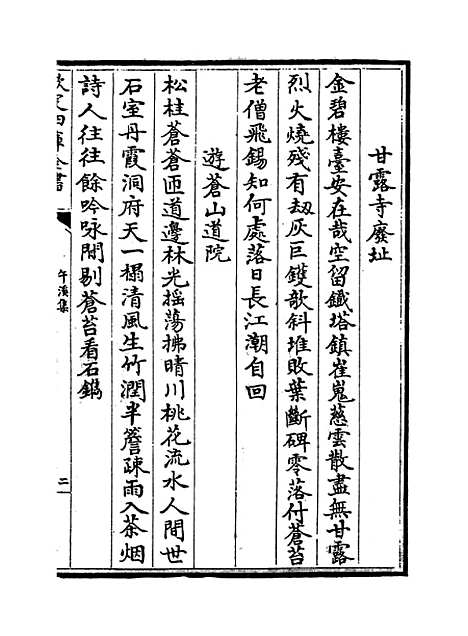 甘露寺廢址
金碧樓臺安在哉空留鐵塔鎮崔嵬慈雲散盡無甘露
烈火燒殘有刼灰巨鑊欹斜堆敗葉斷碑零落付蒼苔
老僧飛錫知何處落日長江潮自回
遊蒼山道院
松桂蒼蒼匝道邊林光摇蕩拂晴川桃花流水人間世
石室丹霞洞府天一榻清風生竹潤半簷疎雨入茶烟
詩人往往餘吟咏閒剔蒼苔看石鐫
欽定四庫全書
午溪集
二